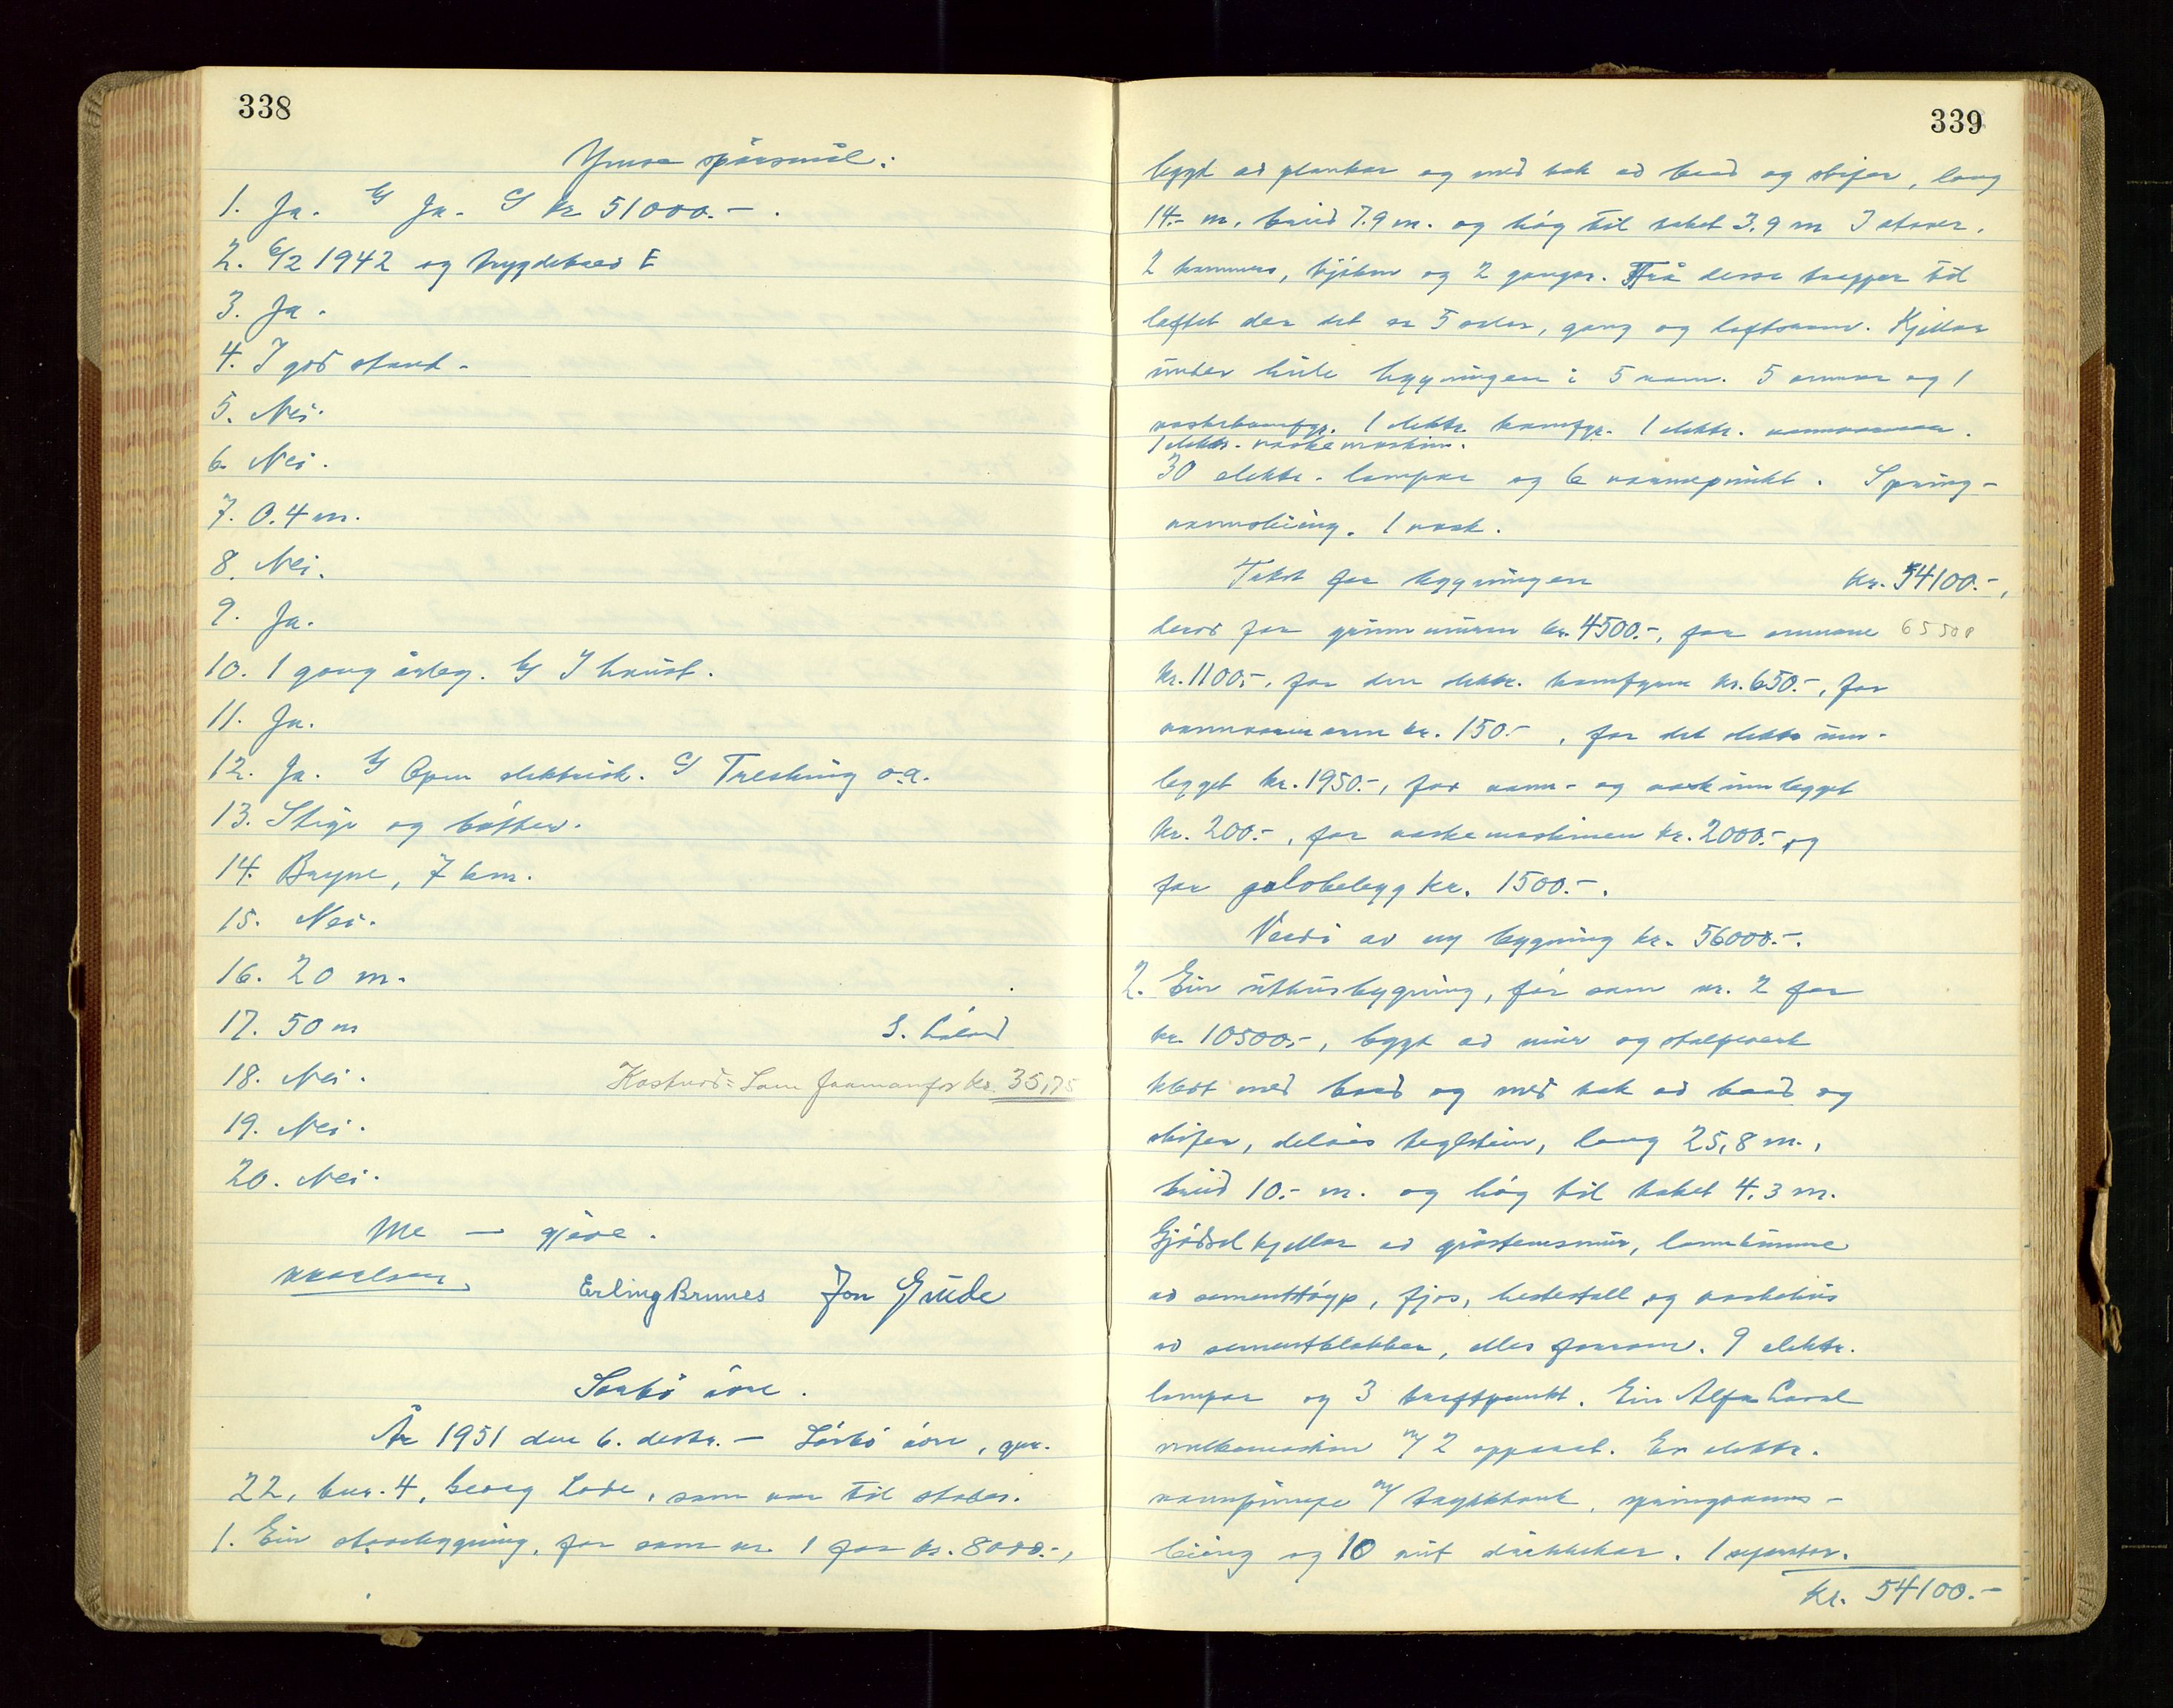 338
Ymse spörsmål:
1. Ja. b/ Ja. c/ kr 51000.-.
2. 6/2 1942 og bygdebrev E
3. Ja.
4. I god stand.
5. Nei.
6. Nei.
7. 0.4 m.
8. Nei.
9. Ja.
10. 1 gong årleg. b/ I haust.
11. Ja.
12. Ja. b/ Open elektrisk. c/ Tresking o.a.
13. Stige og bötter.
14. Bryne, 7 km.
15. Nei.
16. 20 m.
17. 50 m S. Låland
18. Nei. Kostnad = Som framanfor kr. 35,75
19. Nei.
20. Nei.
Me — gjeve.
Erling Brunes Jon Grude
Sörbö övre.
År 1951 den 6. desbr. — Sörbö övre, gnr.
22, bnr. 4, Georg Lode, som var til stades.
1. Ein stovebygning, för som nr. 1 for kr. 8000.-,
339
bygt av plankar og med tak av bord og skifer, lang
14.- m, breid 7.9 m. og høg til taket 3.9 m 3 stover,
2 kammers, kjöken og 2 gangar. Frå desse trapper til
loftet der det er 5 rom, gang og loftsrom. Kjellar
under heile bygningen i 5 rom. 5 omnar og 1
vaskekomfyr. 1 elektr. komfyr. 1 elektr. vannvarmar.
1 elektr. vaskemaskin.
30 elektr. lampar og 6 varmepunkt. Spring-
vannsleiing. 1 vask.
Takst for bygningen kr. 54100.-,
derav for grunnmuren kr. 4500.-, for omnane 65500
kr. 1100,-, for den elektr. komfyren kr. 650.-, for
vannvarmaren kr. 150.-, for det elektr. inn-
legget kr. 1950.-, for vann- og vaskinnlegget
kr. 200.-, for vaskemaskinen kr. 2000.- og
for golvbelegg kr. 1500.-.
Verdi av ny bygning kr. 56000.-.
2. Ein uthusbygning, för som nr. 2 for
kr. 10500,-, bygt av mur og stolpeverk
kledt med bord og med tak av bord og
skifer, delvis teglstein, lang 25,8 m.,
breid 10.- m. og høg til taket 4.3 m.
Gjødselkjellar av gråsteinsmur, landkumme
av sementstöyp, fjos, hestestall og vaskehus
av sementblokker, elles forrom. 9 elektr.
lampar og 3 kraftpunkt. Ein Alfa Laval
mölkemaskin m/ 2 apparat. En elektr.
vannpumpe m/ trykktank, springvanns-
leiing og 10 aut drikkekar. 1 separator.
Kr. 54100.-